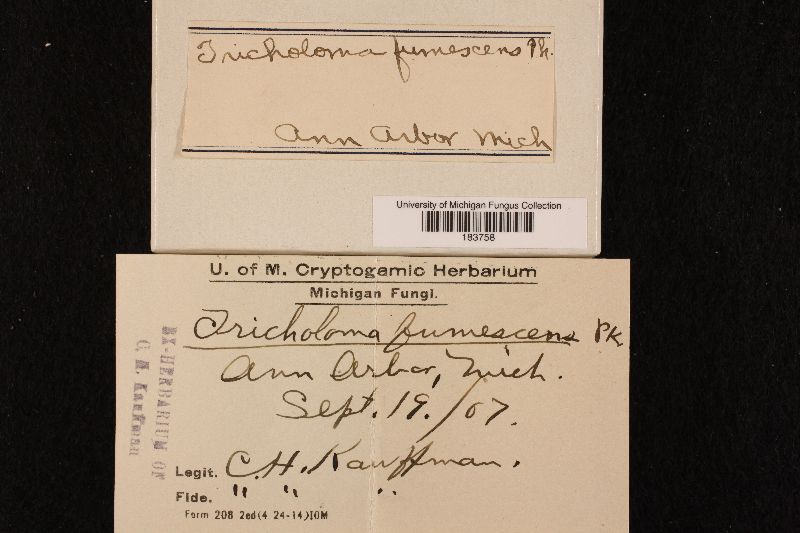 Tricholoma fumescens Pk.
Ann Arbor Mich
University of Michigan Fungus Collection
183758
U. of M. Cryptogamic Herbarium
Michigan Fungi.
Tricholoma fumescens Pk
Ann Arbor, Mich.
Sept. 19. /07.
Legit. C.H. Kauffman.
Fide. " " "
Form 208 2ed(4 24-14)10M
EX-HERBARIUM OF
C. H. Kauffman